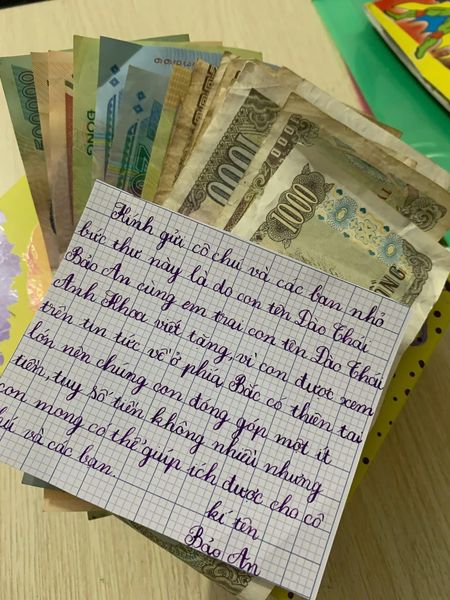 Kính gửi cô chú và các bạn nhỏ
bức thư này là do con tên Đào Thái
Bảo An cùng em trai con tên Đào Thái
Anh Khoa viết tặng, vì con được xem
trên tin tức về ở phía Bắc có thiên tai
lớn nên chúng con đóng góp một ít
tiền, tuy số tiền không nhiều nhưng
con mong có thể giúp ích được cho cô
chú và các bạn.
kí tên
Bảo An
1000
1000
ĐỒNG
500000